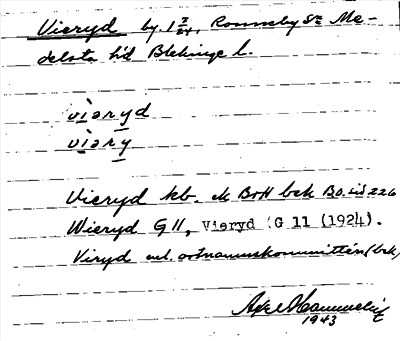 Vieryd by, 1 7/24, Ronneby sn Me-
delsta hd Blekinge l.
vìəryd
vìəry
Vieryd kb. ek BoH bek Bo. sid 226
Wieryd G II, Vieryd G 11 (1924).
Viryd enl. ortnamnskommittén (bek)
1943